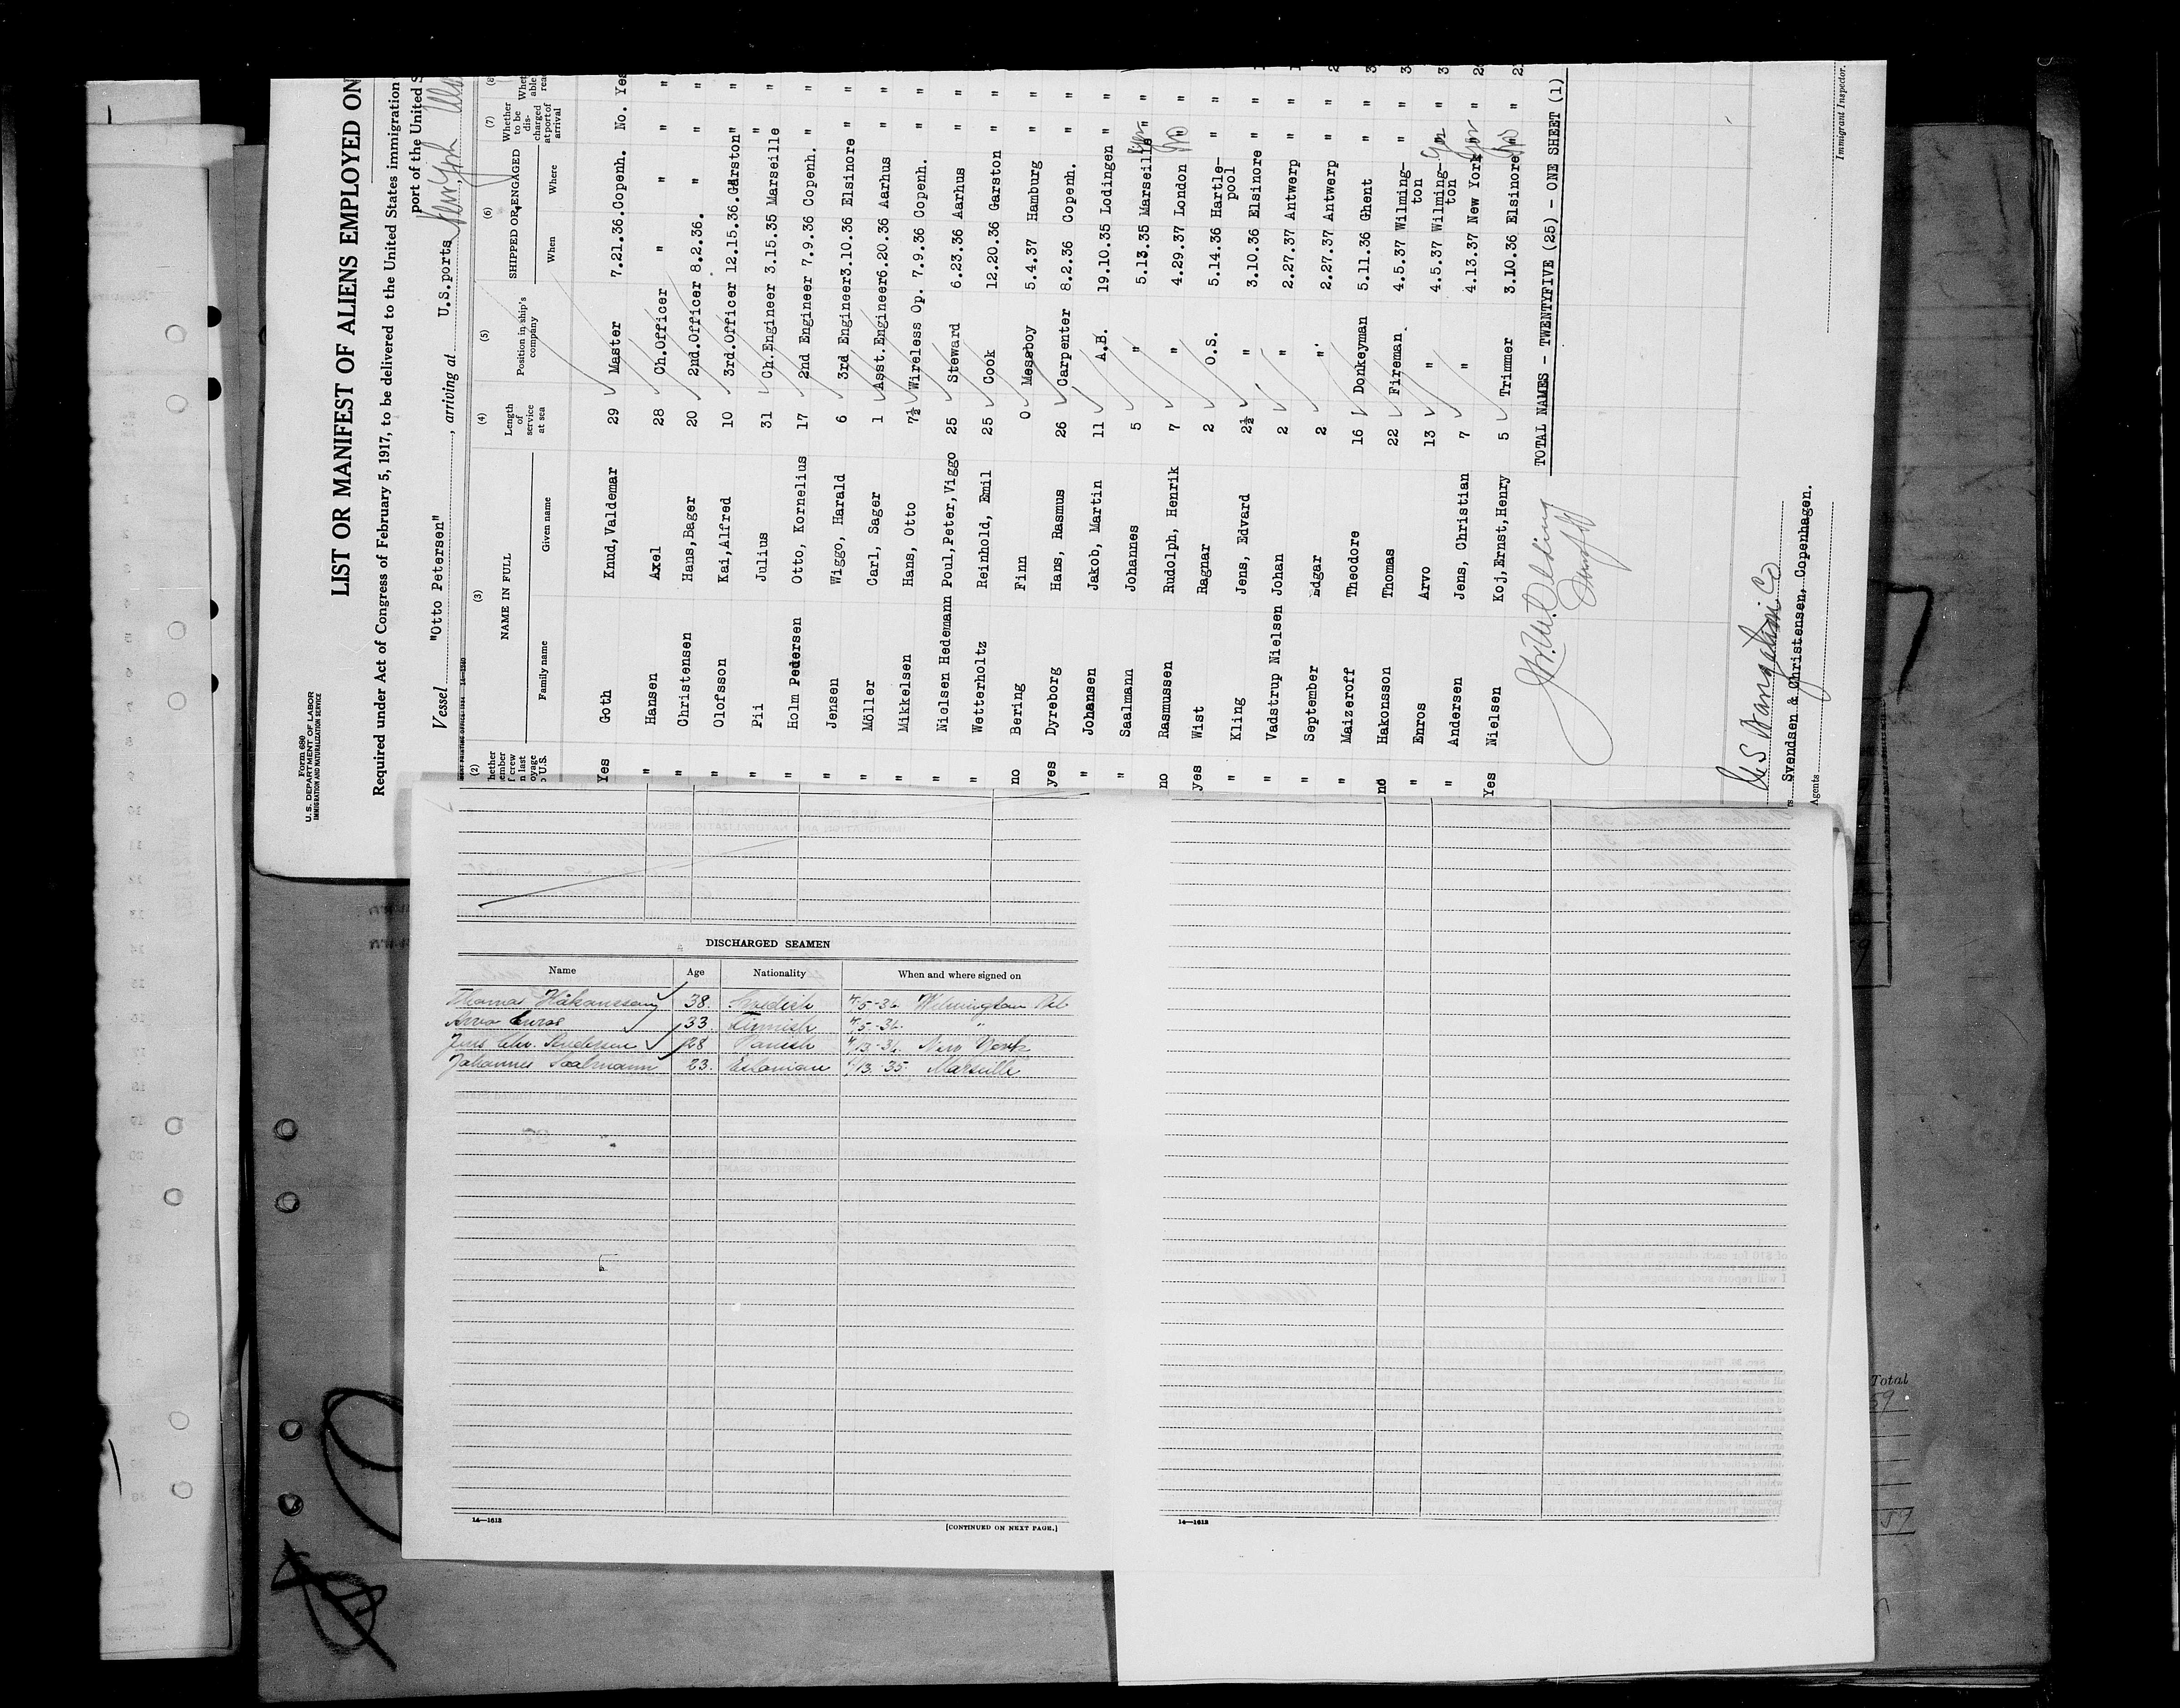 Form 680
U. S. DEPARTMENT OF LABOR
IMMIGRATION AND NATURALIZATION SERVICE
LIST OR MANIFEST OF ALIENS EMPLOYED ON
Required under Act of Congress of February 5, 1917, to be delivered to the United States immigration
port of the United S
Vessel "Otto Petersen", arriving at U.S.ports
(2) (3) (4) (5) (6) (7) (8)
hether ember f crew n last oyage o U.S. NAME IN FULL Length of service at sea Position in ship's company SHIPPED OR ENGAGED Whether to be discharged at port of arrival Whet able rea
Family name Given name When Where
Yes Goth Knud,Valdemar 29 Master 7.21.36. Copenh. No. Yes
" Hansen Axel 28 Ch.Officer " " " "
" Christensen Hans,Bager 20 2nd.Officer 8.2.36. " " "
" Olofsson Kai,Alfred 10 3rd.Officer 12.15.36. Garston " "
" Pii Julius 31 Ch.Engineer 3.15.35 Marseille " "
" Holm Pedersen Otto, Kornelius 17 2nd Engineer 7.9.36 Copenh. " "
" Jensen Wiggo, Harald 6 3rd Engineer 3.10.36 Elsinore " "
" Möller Carl, Sager 1 Asst.Engineer 6.20.36 Aarhus " "
" Mikkelsen Hans, Otto 7½ Wireless Op. 7.9.36 Copenh. " "
" Nielsen Hedemann Poul,Peter,Viggo 25 Steward 6.23.36 Aarhus " "
" Wetterholtz Reinhold, Emil 25 Cook 12.20.36 Garston " "
no Bering Finn 0 Messboy 5.4.37 Hamburg " "
yes Dyreborg Hans, Rasmus 26 Carpenter 8.2.36 Copenh. " "
" Johansen Jakob, Martin 11 A.B. 19.10.35 Lodingen " "
" Saalmann Johannes 5 " 5.13.35 Marseille " "
no Rasmussen Rudolph, Henrik 7 " 4.29.37 London " "
yes Wist Ragnar 2 O.S. 5.14.36 Hartle-pool " "
" Kling Jens, Edvard 2½ " 3.10.36 Elsinore " " 1
" Vadstrup Nielsen Johan 2 " 2.27.37 Antwerp " " 1
" September Edgar 2 " 2.27.37 Antwerp " " 2
" Maizeroff Theodore 16 Donkeyman 5.11.36 Ghent " " 3
no Hakonsson Thomas 22 Fireman 4.5.37 Wilming-ton " " 3
" Enros Arvo 13 " 4.5.37 Wilming-ton " " 3
" Andersen Jens, Christian 7 " 4.13.37 New York " " 2
Yes Nielsen Koj,Ernst,Henry 5 Trimmer 3.10.36 Elsinore " " 2
TOTAL NAMES - TWENTYFIVE (25) - ONE SHEET (1)
Svendsen & Christensen, Copenhagen.
Agents
Immigrant Inspector.
DISCHARGED SEAMEN
Name Age Nationality When and where signed on
Thomas Håkanssony 38. Swedish 4/5-36. Wilmington Del
Arvo Enros 33 Finnish 4/5-36. "
Jens Chr. Andersen 28 Danish 4/13-36. New York
Johannes Saalmann 23. Estonian 5/13-35. Marseille
14—1613
[CONTINUED ON NEXT PAGE.]
14—1613
Total
59
59